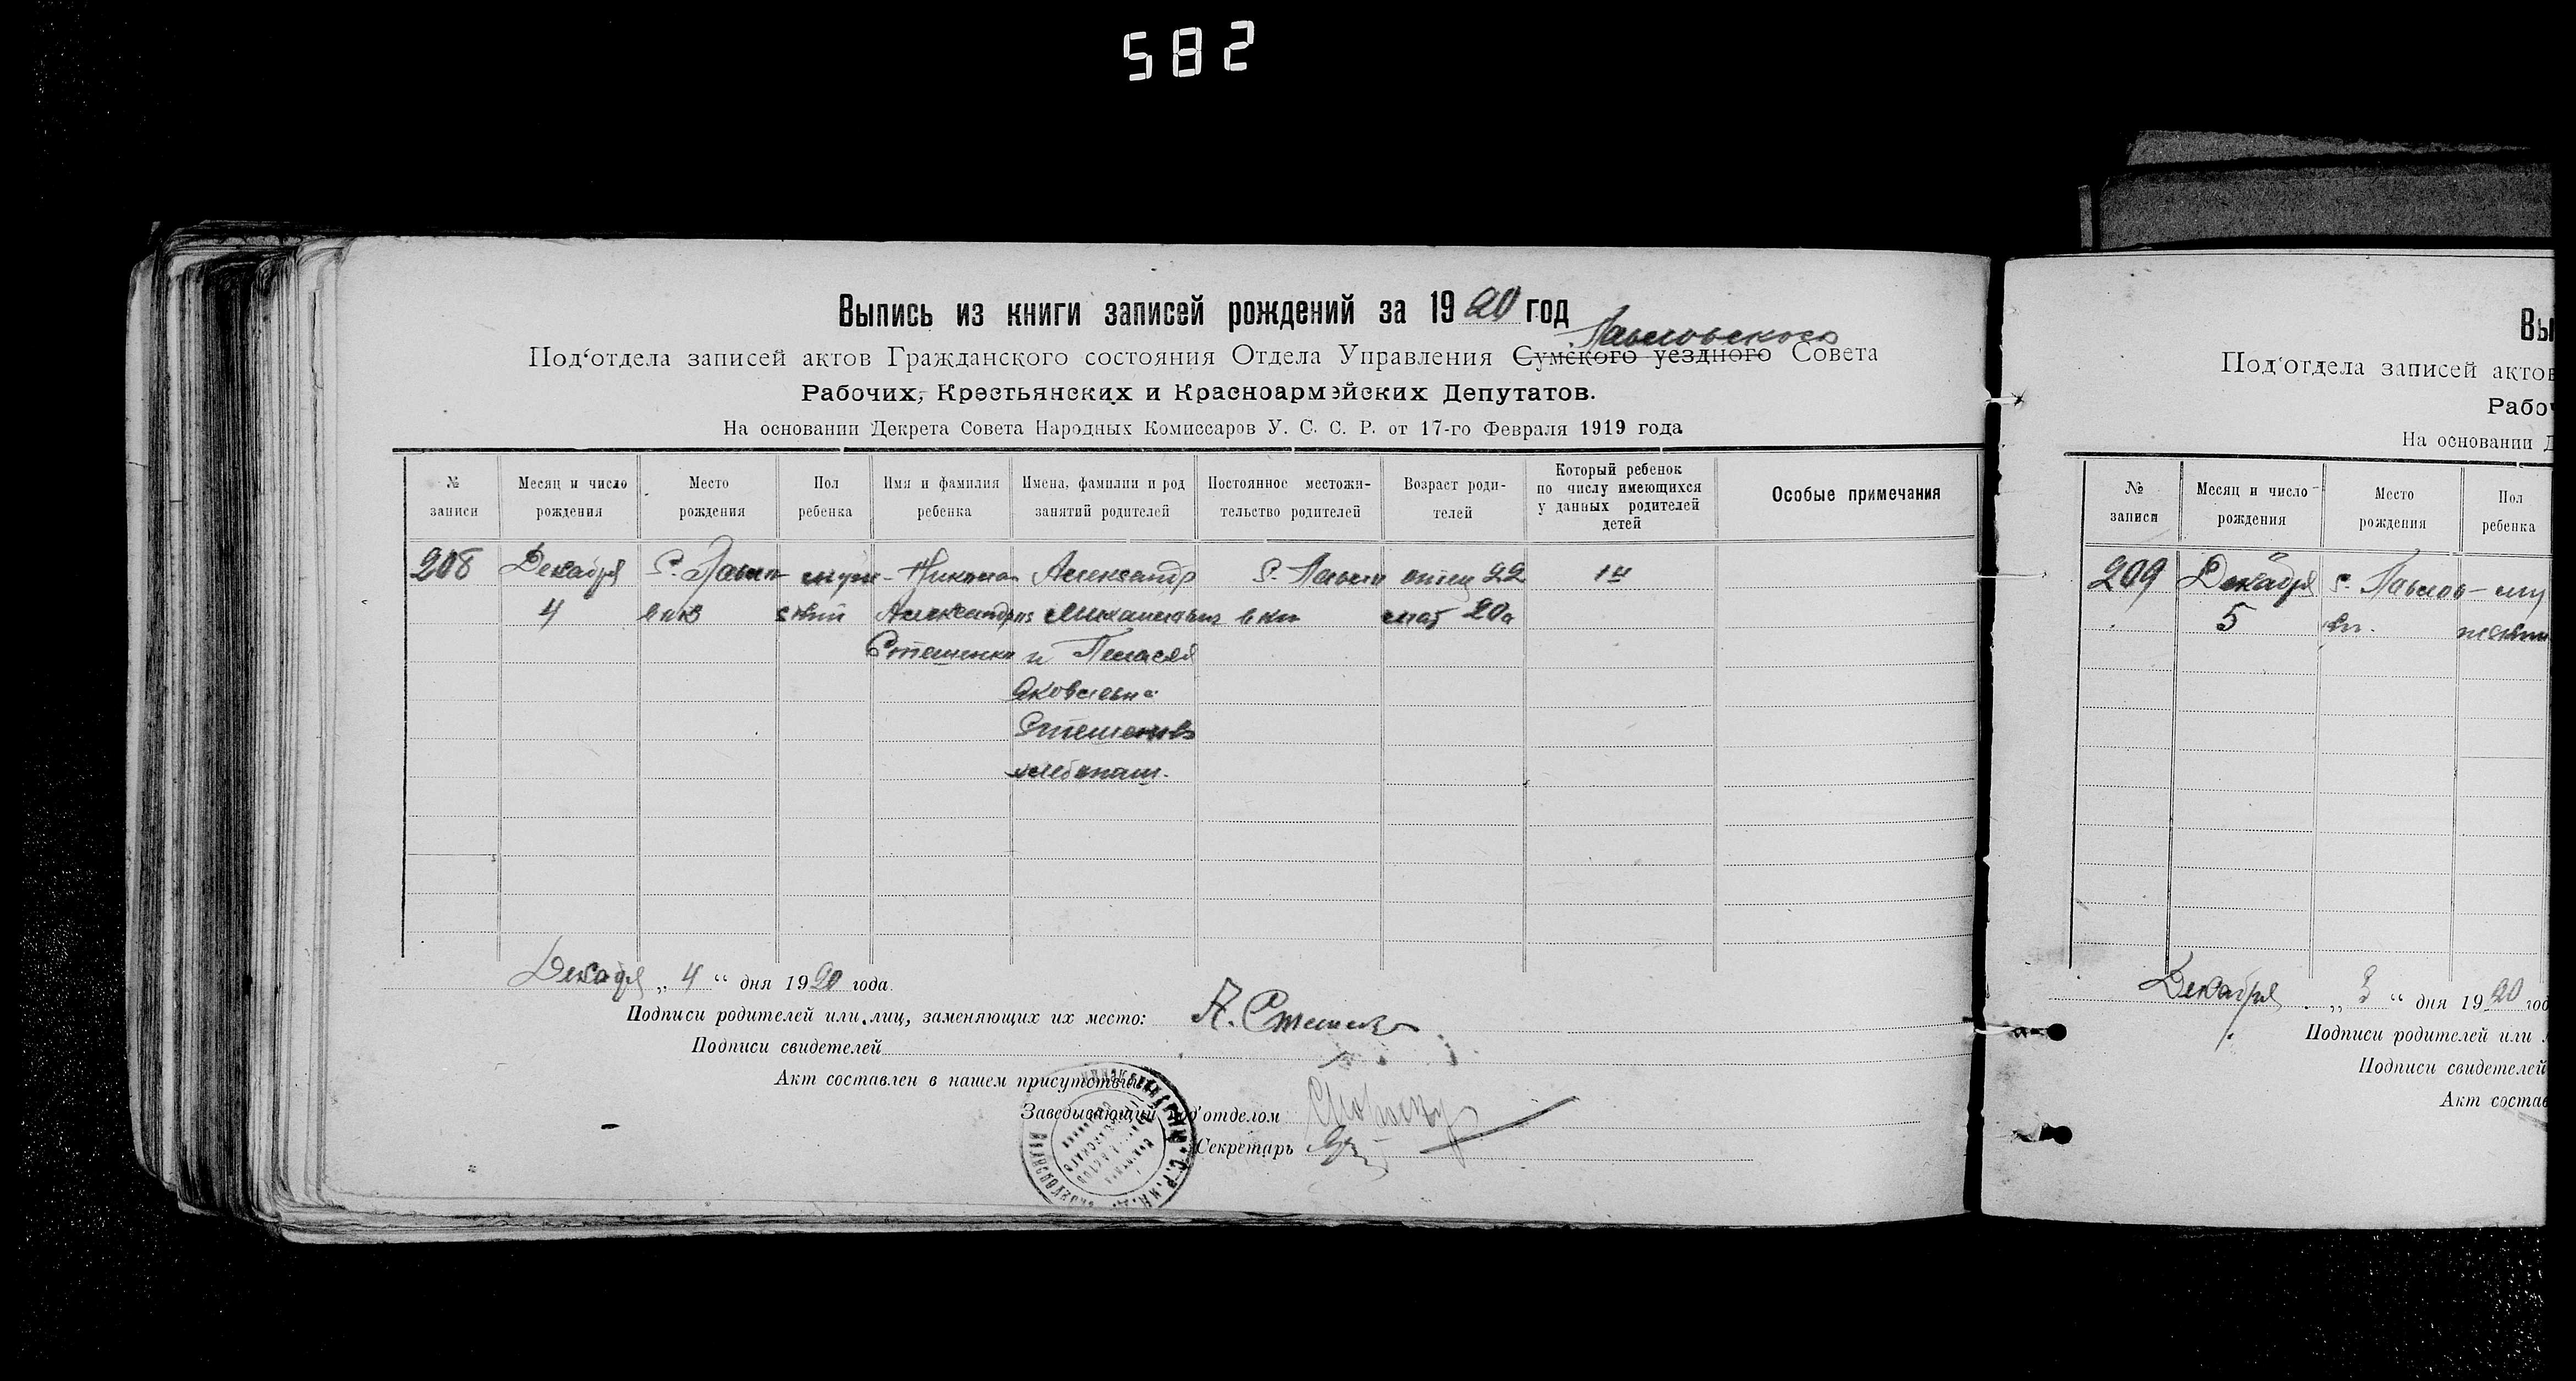 582
Выпись из книги записей рождений за 1920 год
Павловского
Под‘отдела записей актов Гражданского состояния Отдела Управления Сумского уездного Совета
Рабочих, Крестьянских и Красноармейских Депутатов.
На основании Декрета Совета Народных Комиссаров У. С. С. Р. от 17-го Февраля 1919 года
№ записи
Месяц и число рождения
Место рождения
Пол ребенка
Имя и фамилия ребенка
Имена, фамилии и род занятий родителей
Постоянное местожительство родителей
Возраст родителей
Который ребенок по числу имеющихся у данных родителей детей
Особые примечания
208 Декабря С. Павло- муж- Николай Александр С. Павло отец 22 1й
4 вка ский Александров Михайлович вка мат 20
Стешенко и Пелагея
Яковлевна
Стешенко
хлебопаш.
Декабря „ 4 “ дня 1920 года.
Подписи родителей или лиц, заменяющих их место: А. Стешенко
Подписи свидетелей
Акт составлен в нашем присутствии
Заведывающий под‘отделом
Секретарь
Вы
Под‘отдела записей актов
Рабоч
На основании Д
№ записи
Месяц и число рождения
Место рождения
Пол ребенка
209 Декабря с. Павлов-
5
Декабря „ 5 “ дня 1920 год
Подписи родителей или
Подписи свидетелей
Акт состав